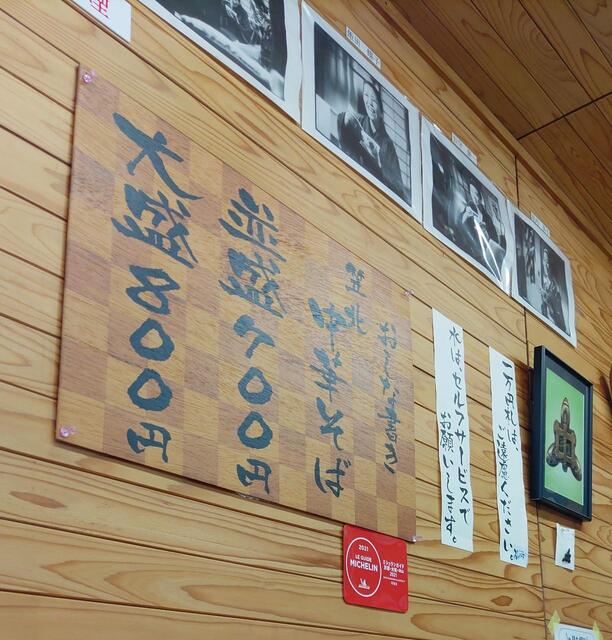 笠岡
中華そば
並盛700円
大盛800円
水は、セルフサービスで
お願いします。
一万円札は
ご遠慮ください。
2021
LE GUIDE
MICHELIN
ミシュランガイド
京都・大阪+岡山
2021